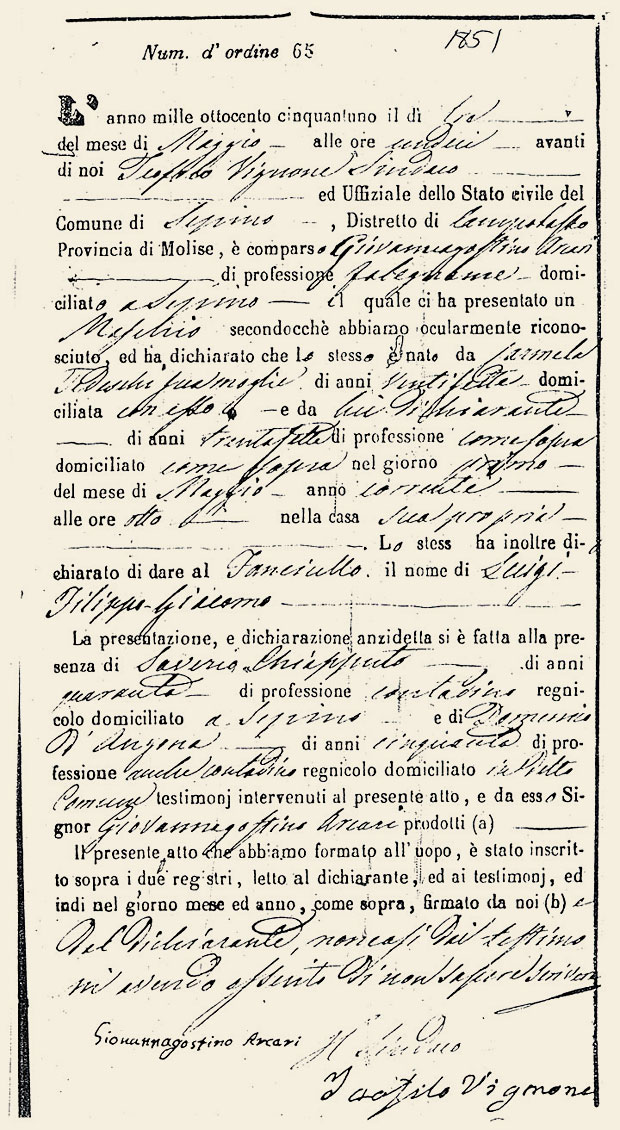 1851
Num. d' ordine 65
L' anno mille ottocento cinquantuno il dì tre
del mese di Maggio alle ore undici avanti
di noi Teofilo Vignone Sindaco
ed Uffiziale dello Stato civile del
Comune di Sepino , Distretto di Campobasso
Provincia di Molise, è comparso Giovannagostino Arcari
di professione falegname domi-
ciliato a Sepino il quale ci ha presentato un
Maschio secondocchè abbiamo ocularmente ricono-
sciuto, ed ha dichiarato che lo stesso è nato da Carmela
Tedeschi sua moglie di anni ventisette domi-
ciliata con esso e da lui dichiarante
di anni trentasette di professione come sopra
domiciliato come sopra nel giorno primo
del mese di Maggio anno corrente
alle ore otto nella casa sua propria
. Lo stess ha inoltre di-
chiarato di dare al Fanciullo il nome di Luigi
Filippo Giacomo
La presentazione, e dichiarazione anzidetta si è fatta alla pre-
senza di Saverio Chiapputo di anni
quaranta di professione contadino regni-
colo domiciliato a Sepino e di Domenico
D'Angona di anni cinquanta di pro-
fessione anche contadino regnicolo domiciliato in detto
Comune testimonj intervenuti al presente atto, e da esso Si-
gnor Giovannagostino Arcari prodotti (a)
Il presente atto che abbiamo formato all'uopo, è stato inscrit-
to sopra i due registri, letto al dichiarante, ed ai testimonj, ed
indi nel giorno mese ed anno, come sopra, firmato da noi (b) e
dal dichiarante, non così dai testimo
ni avendo asserito di non sapere scrivere
Giovannagostino Arcari
Il Sindaco
Teofilo Vignone